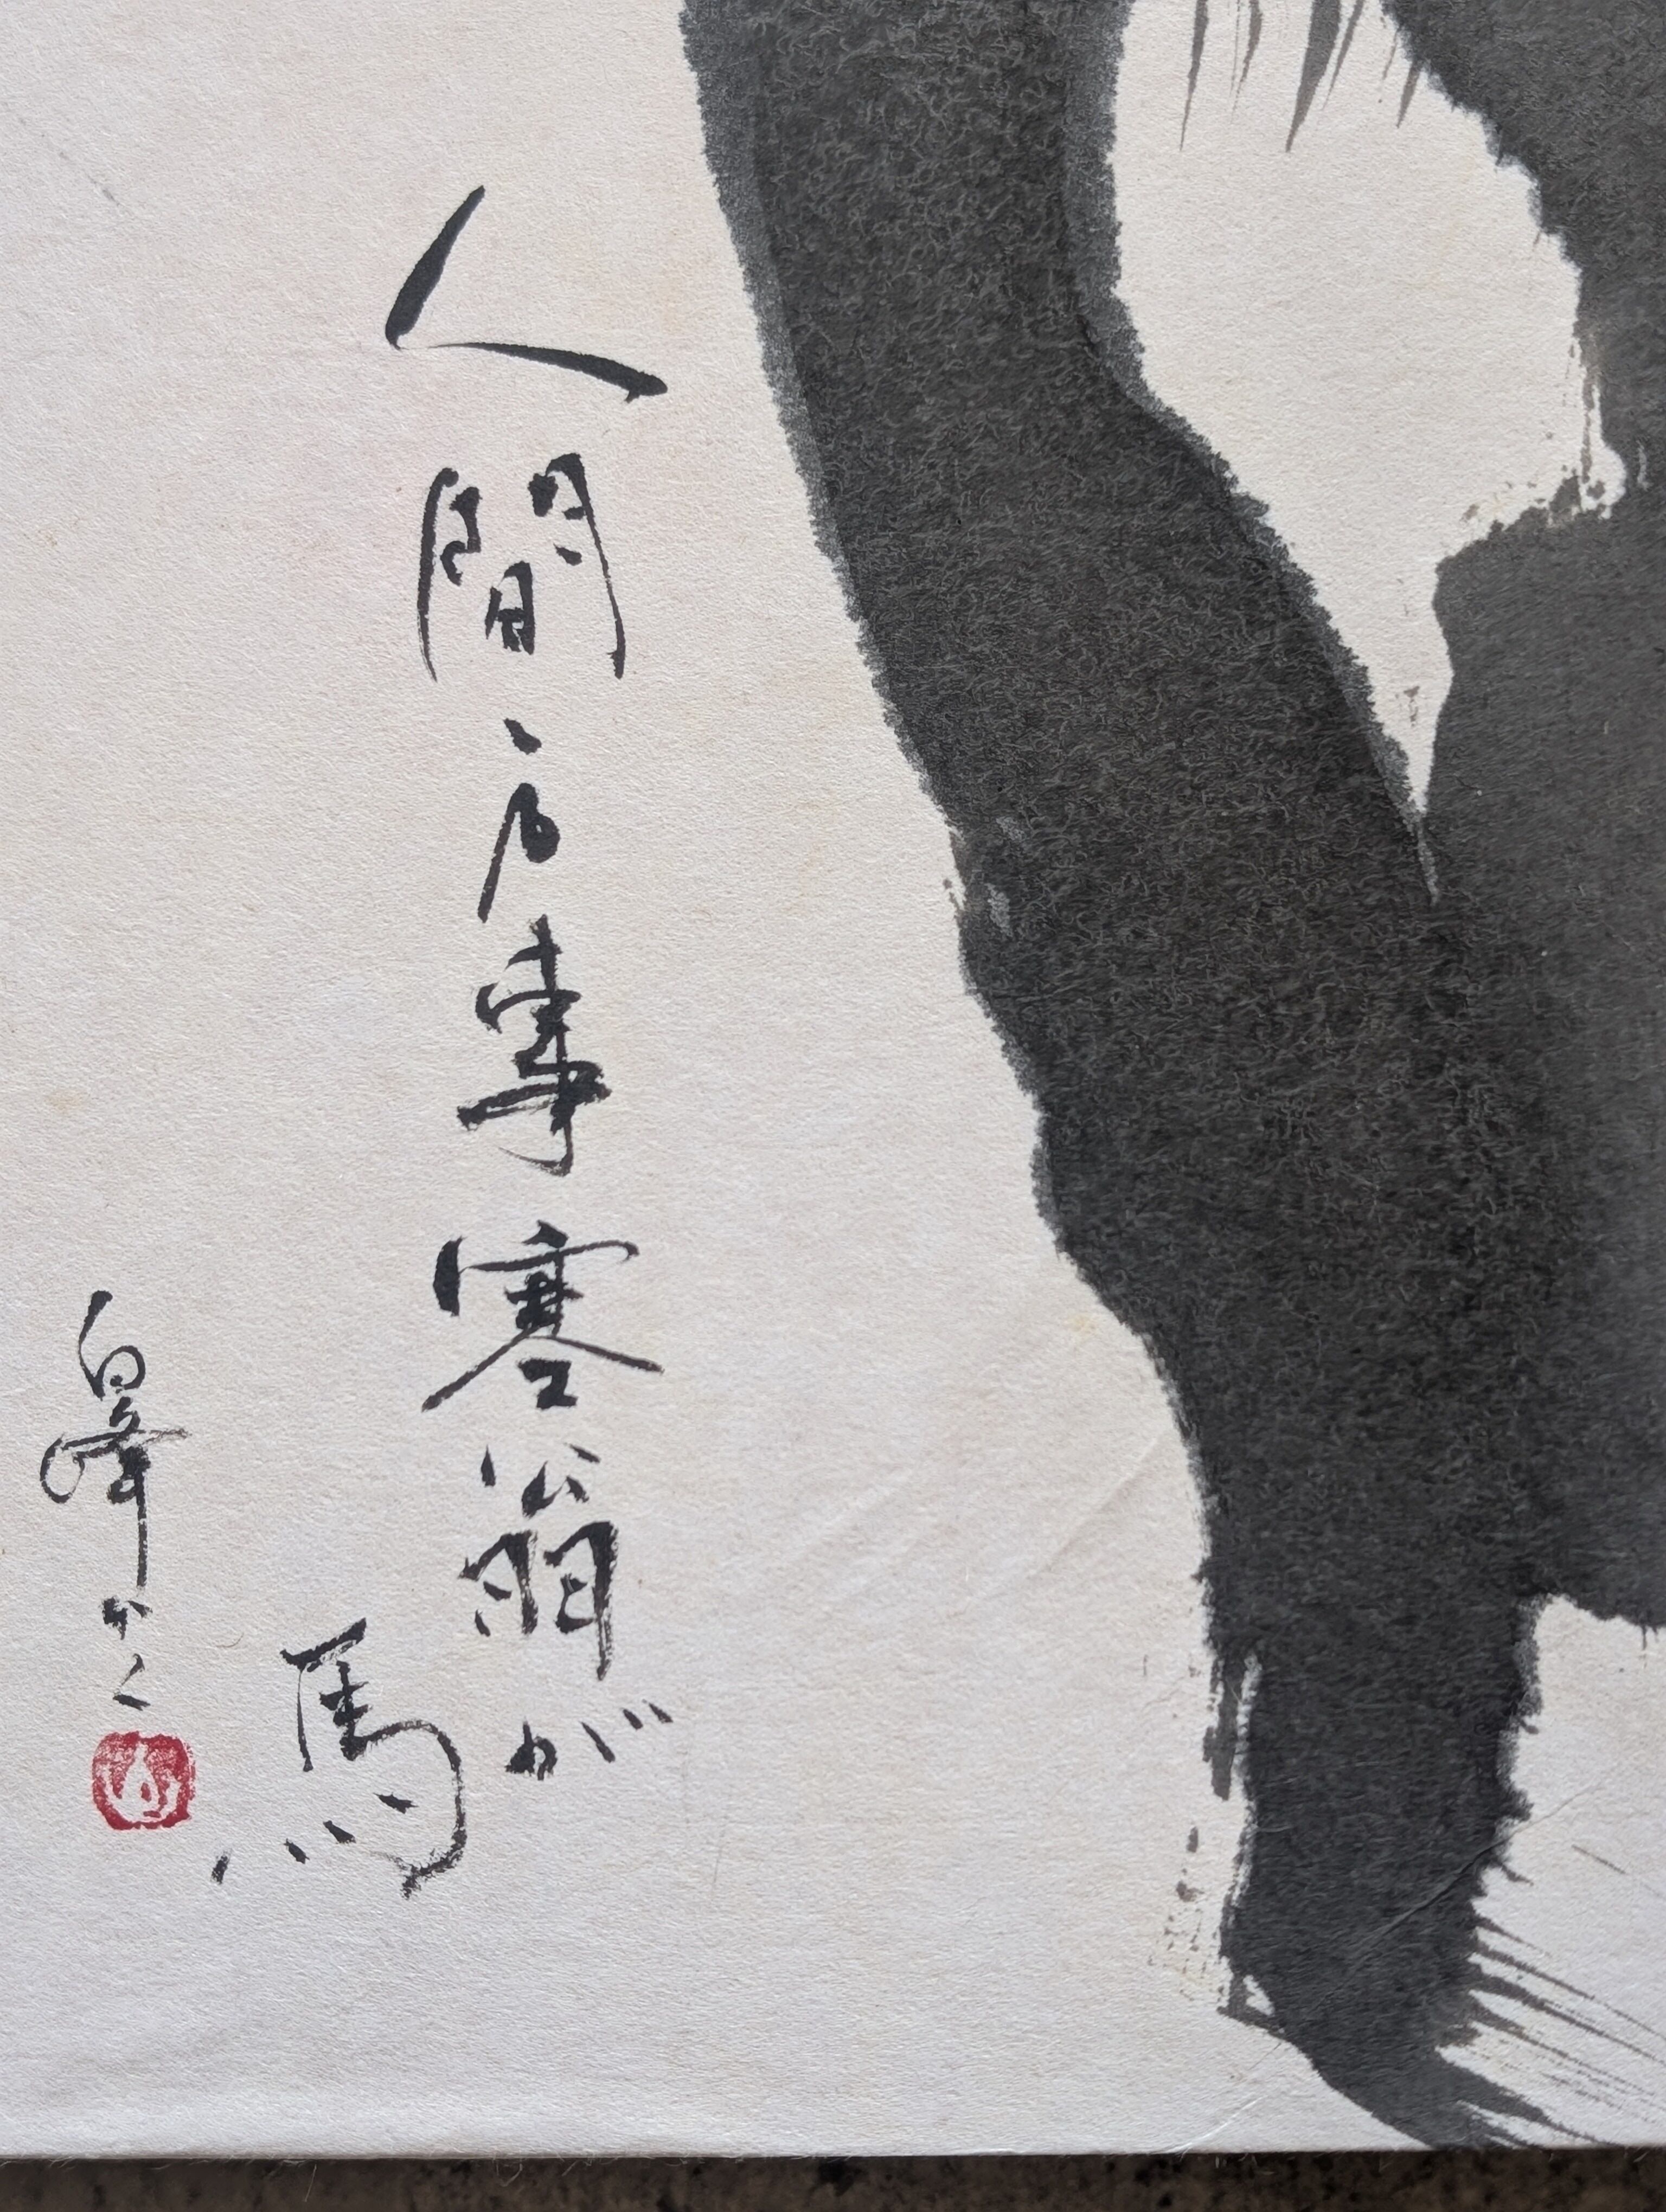 人間万事塞翁が
馬
白峰かく